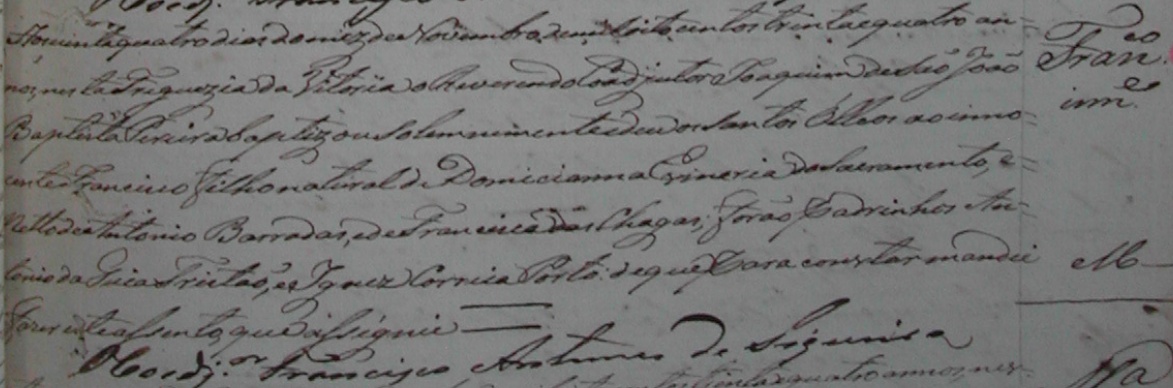 Aos vinte quatro dias do mez de Novembro de mil oito centos trinta e quatro an=
nos, nesta Freguezia da Vitória o Reverendo Coadjutor Joaquim de São João
Baptista Pereira baptizou solemnemente e deu os Santos Olleos ao inno=
cente Francisco filho natural de Domicianna do Sacramento, e=
Netto de Antonio Barradas, e de Francisca das Chagas; forão Padrinhos An=
tonio da Guia Tristão, e Ignez Correia Porto: de que para constar mandei
fazer este assento, que assignei
Coadj.or Francisco Antunes de Siqueira
Fran.co
inn.e
M